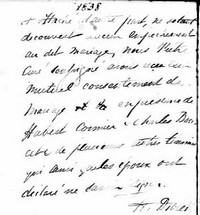 1838
d'autre part, ne s'étant
découvert aucun empêchement
au dit mariage, nous Prêtre
Curé soussigné avons reçu leur
mutuel consentement de
mariage en presence de
Hubert Cormier, Charles
et de plusieurs autres témoins
qui ainsi que les époux ont
déclaré ne savoir signer.